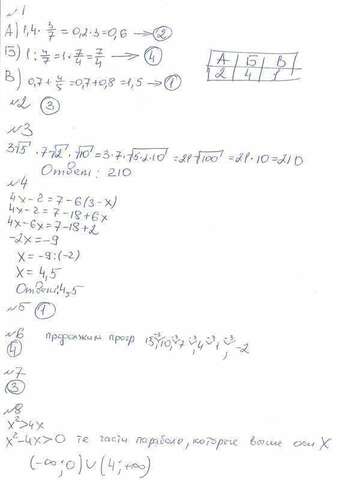 №1
А) 1,4 · 3/7 = 0,2·3 = 0,6 → ②
Б) 1 : 4/7 = 1 · 7/4 = 7/4 → ④
В) 0,7 + 4/5 = 0,7 + 0,8 = 1,5 → ①
А Б В
2 4 1
№2 ③
№3
3√5 · 7√2 · √10 = 3·7·√5·2·10 = 21√100 = 21·10 = 210
Ответ: 210
№4
4x - 2 = 7 - 6(3 - x)
4x - 2 = 7 - 18 + 6x
4x - 6x = 7 - 18 + 2
-2x = -9
x = -9 : (-2)
x = 4,5
Ответ: 4,5
№5 ①
№6 продолжим прогр 13, 10, 7, 4, 1, -2
-3 -3 -3 -3 -3
④
№7
③
№8
x² > 4x
x² - 4x > 0 те части параболы, которые выше оси X
(-∞; 0) ∪ (4; +∞)